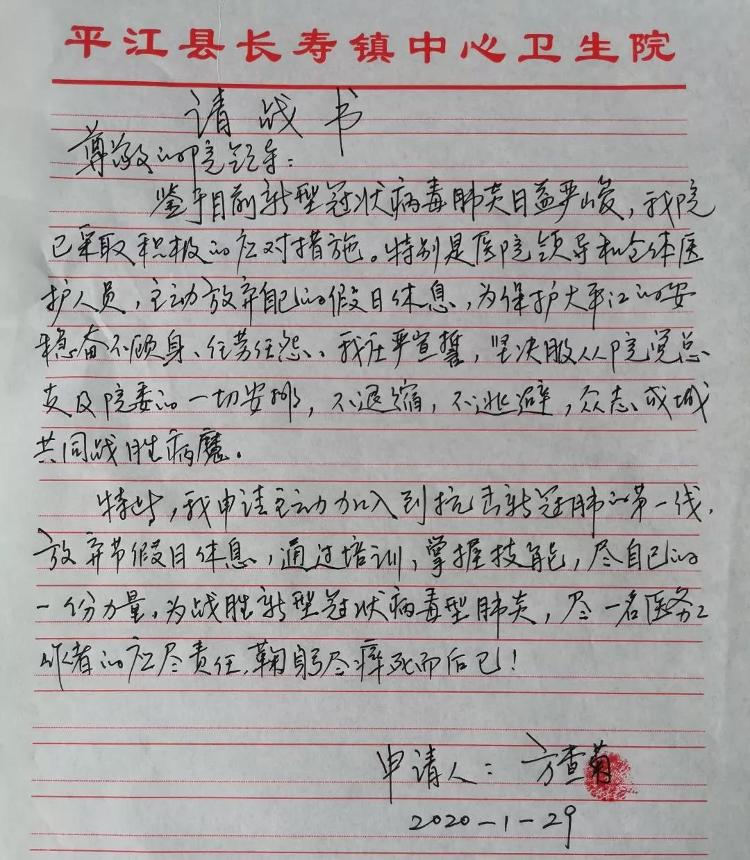 平江县长寿镇中心卫生院
请战书
尊敬的院领导：
鉴于目前新型冠状病毒肺炎日益严峻，我院
已采取积极的应对措施。特别是医院领导和全体医
护人员，主动放弃自己的假日休息，为保护大平江的安
稳奋不顾身、任劳任怨、我庄严宣誓，坚决服从院党总
支及院委的一切安排，不退缩，不逃避，众志成城
共同战胜病魔。
特此，我申请主动加入到抗击新冠肺的第一线，
放弃节假日休息，通过培训，掌握技能，尽自己的
一份力量，为战胜新型冠状病毒型肺炎，尽一名医务工
作者的应尽责任，鞠躬尽瘁死而后已！
申请人：方查菊
2020-1-29